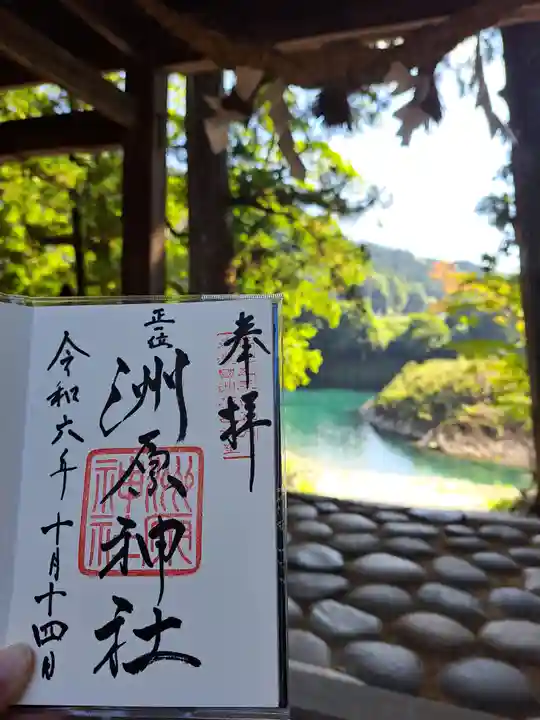 奉拝
正一位
洲原神社
令和六年十月十四日